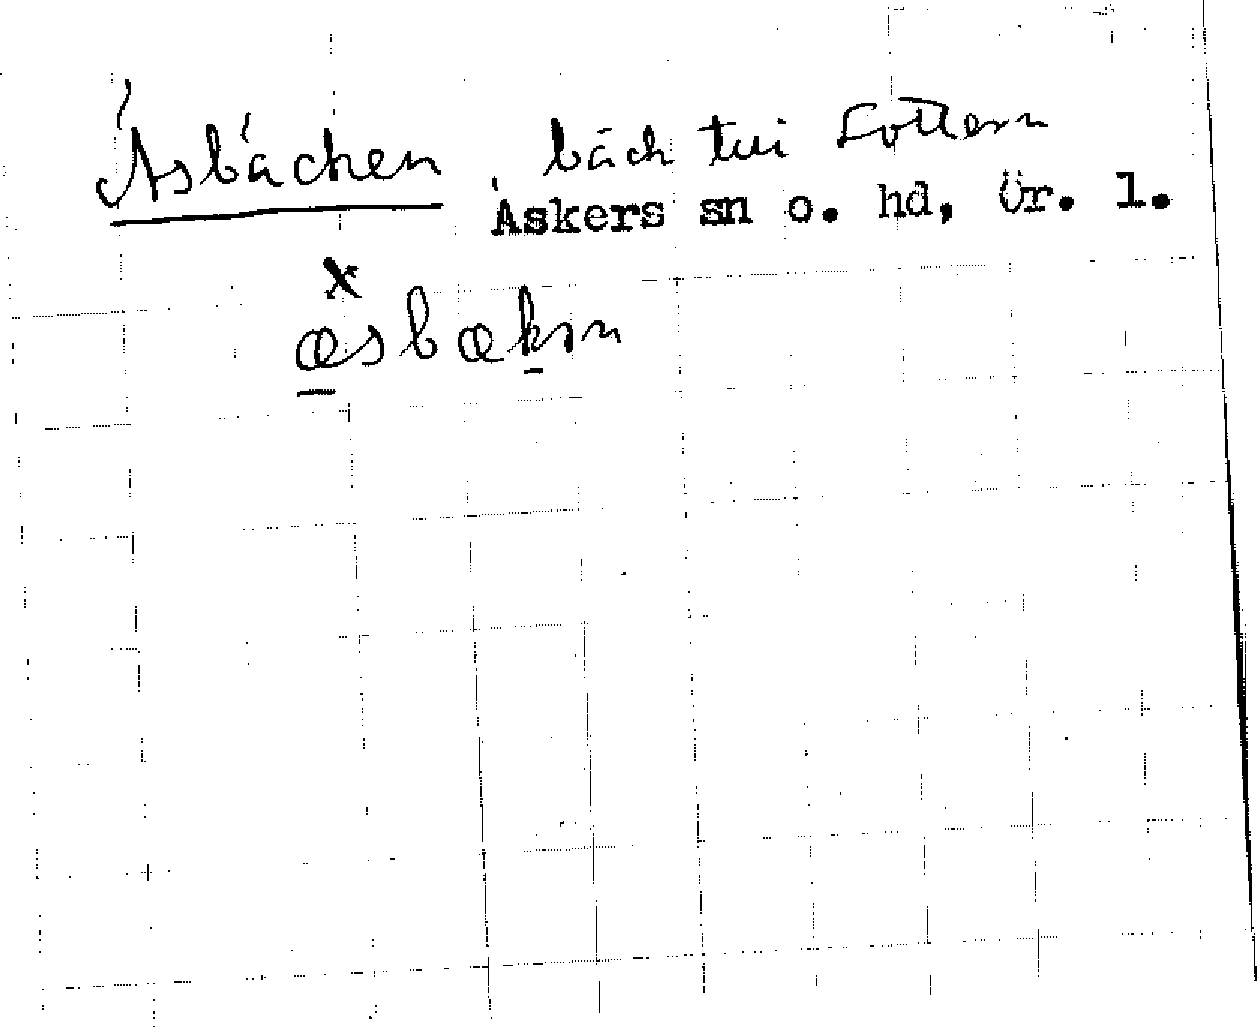 Äsbäcken, bäck till Lottern
Askers sn o. hd, Ör. l.
x
æsbækən